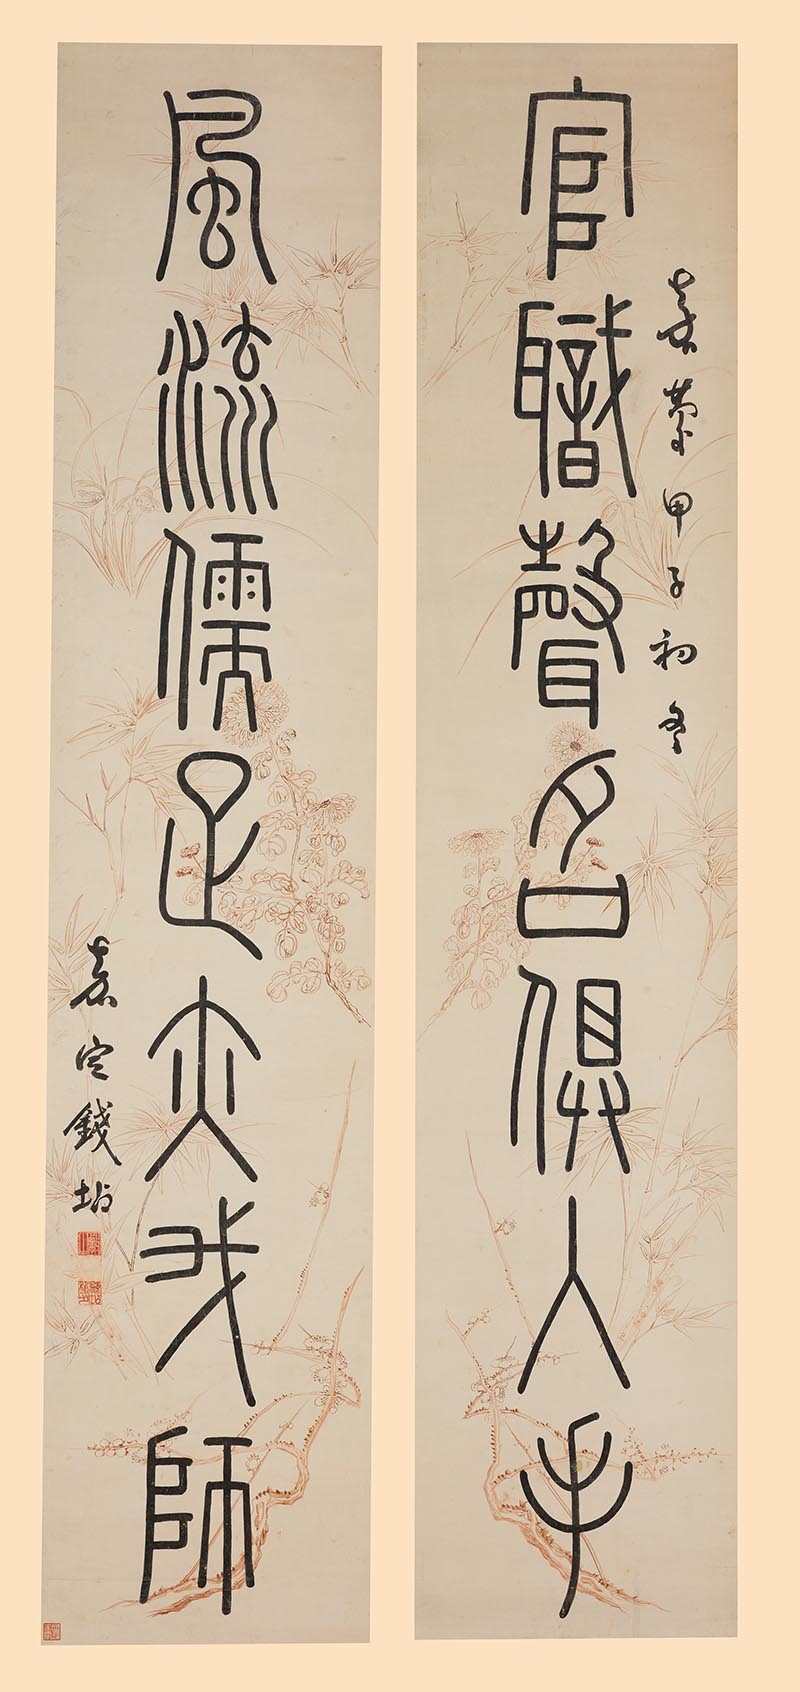 官職聲名俱入手
嘉慶甲子初冬
風流儒疋亦我師
嘉定錢坫